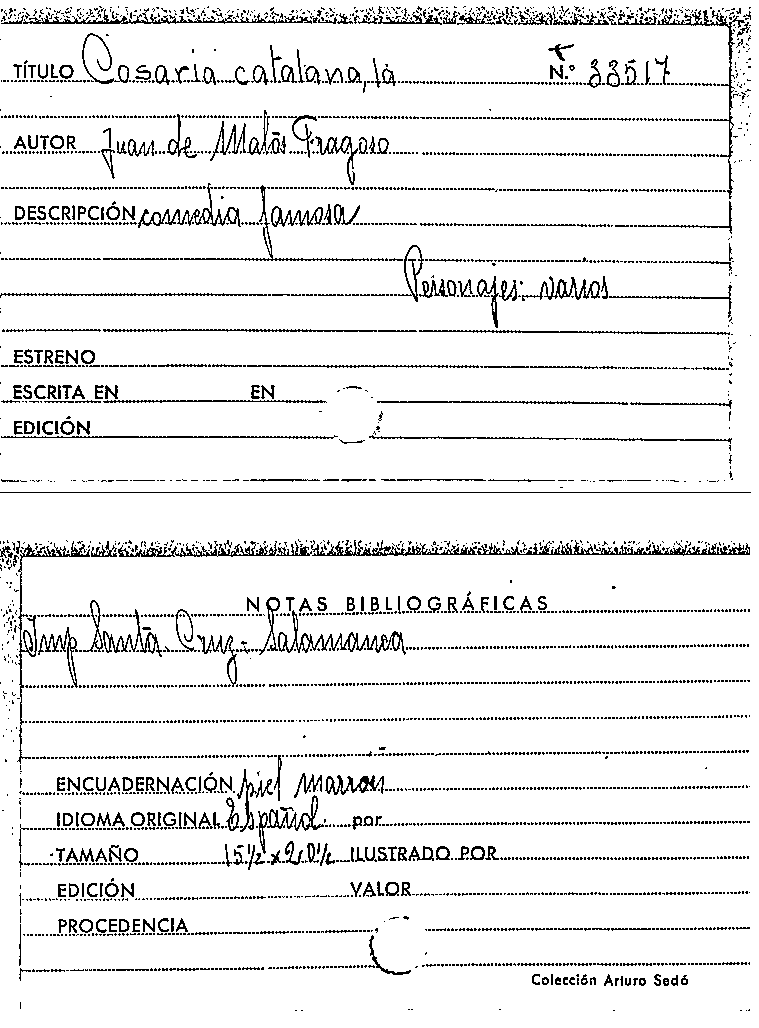 TÍTULO Cosaria catalana, la N.º 33517
AUTOR Juan de Matos Fragoso
DESCRIPCIÓN comedia famosa
Personajes: varios
ESTRENO
ESCRITA EN EN
EDICIÓN
NOTAS BIBLIOGRÁFICAS
Imp Santa Cruz - Salamanca
ENCUADERNACIÓN piel marron
IDIOMA ORIGINAL Español por
TAMAÑO 15½ x 20½ ILUSTRADO POR
EDICIÓN VALOR
PROCEDENCIA
Colección Arturo Sedó